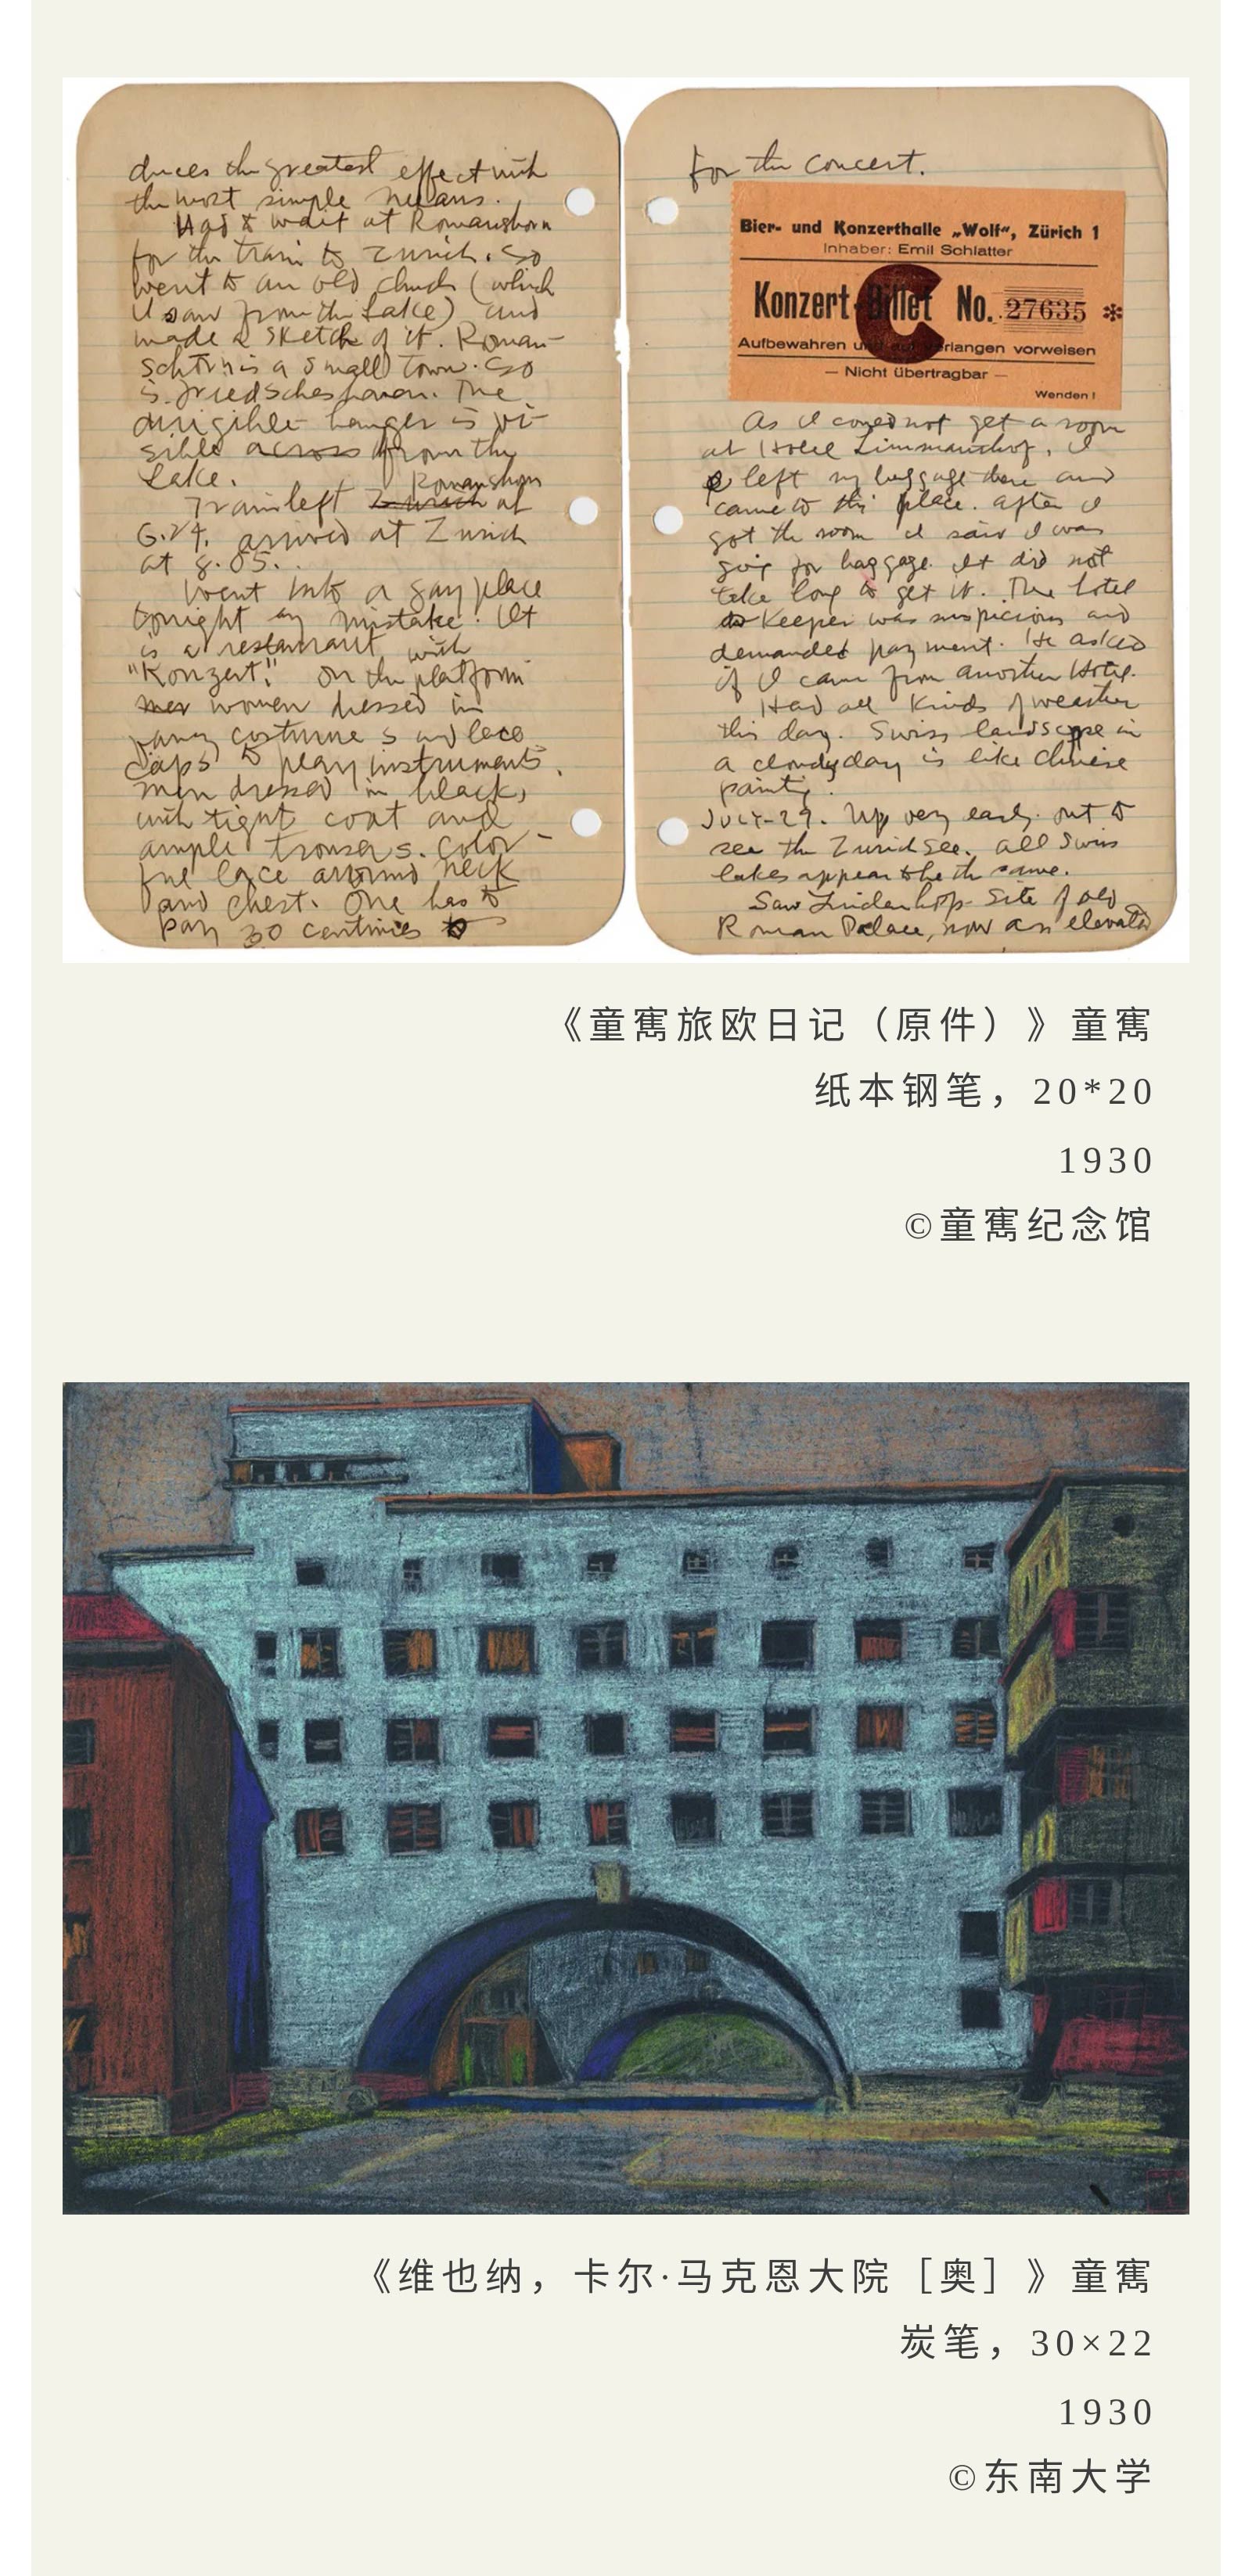 duces the greatest effect with
the most simple means.
Had to wait at Romanshorn
for the train to Zurich. So
went to an old church (which
I saw from the Lake) and
made a sketch of it. Roman-
schorn is a small town. So
is
The
dirigible hanger is vi-
sible across from the
Lake.
Romanshorn
Train left Zurich at
6.24. arrived at Zurich
at 8.05.
Went into a gay place
tonight by mistake! It
is a restaurant with
"Konzert". On the platform
women dressed in
fancy costumes and lace
caps to play instruments.
men dressed in black,
with tight coat and
ample trousers. Color-
ful lace around neck
and chest. One has to
pay 30 centimes to
for the concert.
Bier- und Konzerthalle „Wolf", Zürich 1
Inhaber: Emil Schlatter
Konzert-Billet No. 27635 *
Aufbewahren und auf Verlangen vorweisen
— Nicht übertragbar —
Wenden!
As I could not get a room
at Hotel Limmathof, I
left my luggage there and
came to this place. After I
got the room I said I was
going for baggage. It did not
take long to get it. The hotel
Keeper was suspicious and
demanded payment. He asked
if I came from another Hotel.
Had all kinds of weather
this day. Swiss landscape in
a cloudy day is like Chinese
painting.
JULY-29. Up very early. out to
see the Zurich See. All Swiss
lakes appear to be the same.
Saw Lindenhof - Site of old
Roman Palace, now an elevated
《童寯旅欧日记（原件）》童寯
纸本钢笔，20*20
1930
©童寯纪念馆
《维也纳，卡尔·马克恩大院［奥］》童寯
炭笔，30×22
1930
©东南大学